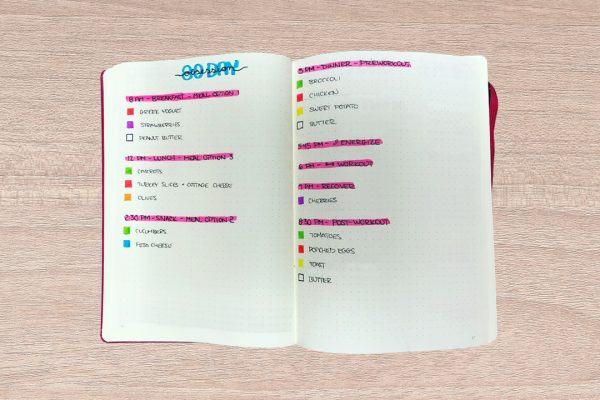 80 DAY
obsession
8 AM - BREAKFAST - MEAL OPTION 1
GREEK YOGURT
STRAWBERRIES
PEANUT BUTTER
12 PM - LUNCH - MEAL OPTION 3
CARROTS
TURKEY SLICES + COTTAGE CHEESE
OLIVES
2:30 PM - SNACK - MEAL OPTION 2
CUCUMBERS
FETA CHEESE
5 PM - DINNER - PREWORKOUT
BROCCOLI
CHICKEN
SWEET POTATO
BUTTER
5:45 PM - ENERGIZE
6 PM - WORKOUT
7 PM - RECOVER
CHERRIES
8:30 PM - POST-WORKOUT
TOMATOES
POACHED EGGS
TOAST
BUTTER